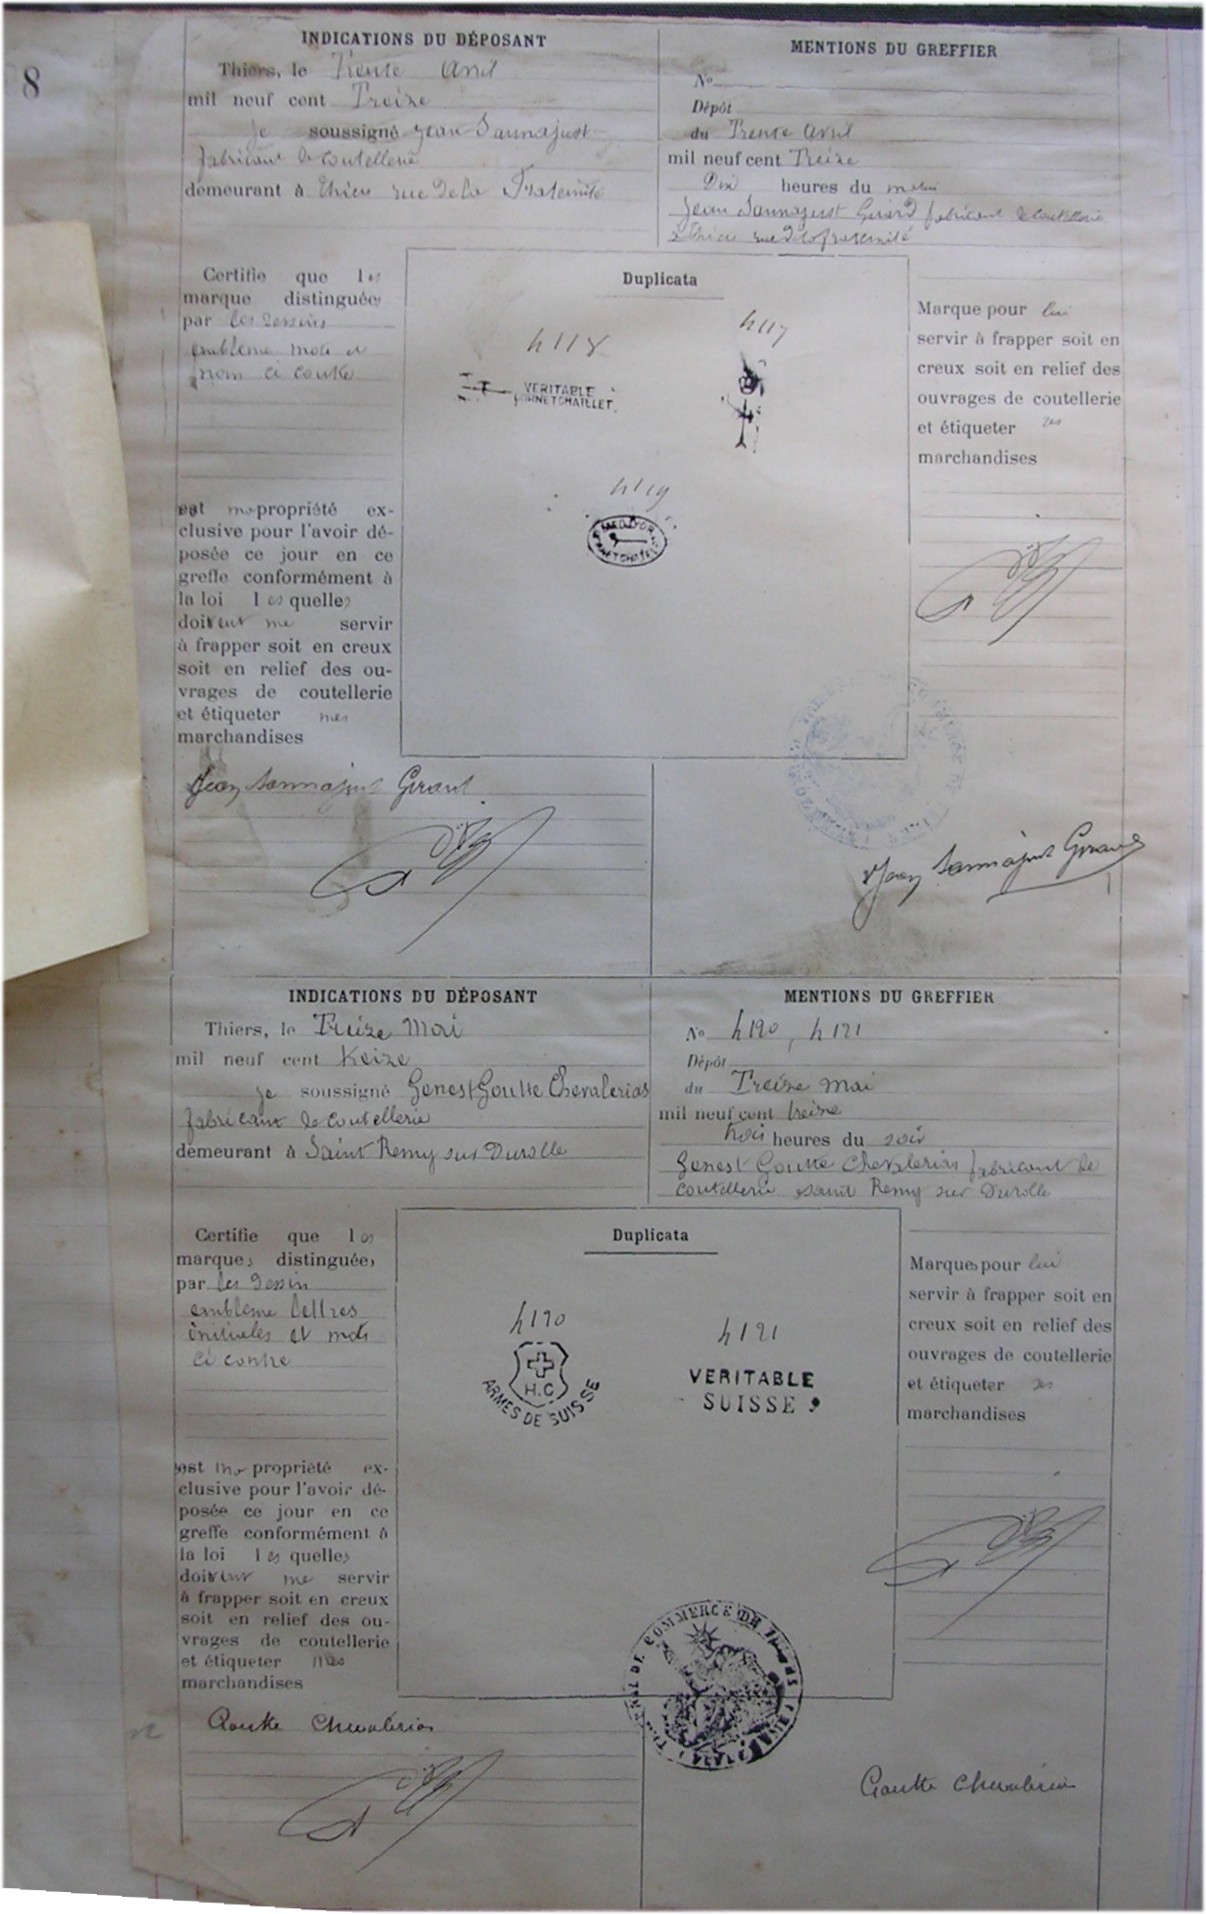 8
INDICATIONS DU DÉPOSANT
Thiers, le Trente Avril
mil neuf cent Treize
je soussigné Jean Sannajust
fabricant de coutellerie
demeurant à Thiers rue de la Fraternité
MENTIONS DU GREFFIER
No
Dépôt
du Trente Avril
mil neuf cent Treize
Dix heures du matin
Jean Sannajust Girard fabricant de coutellerie
à Thiers rue de la fraternité
Certifie que les
marque distinguées
par les dessins
emblème mots et
nom ci contre
est ma propriété ex-
clusive pour l'avoir dé-
posée ce jour en ce
greffe conformément à
la loi lesquelles
doivent me servir
à frapper soit en creux
soit en relief des ou-
vrages de coutellerie
et étiqueter mes
marchandises
Duplicata
4118
4117
VERITABLE
4119
MED. D'OR
Marque pour lui
servir à frapper soit en
creux soit en relief des
ouvrages de coutellerie
et étiqueter ses
marchandises
Jean Sannajust Girard
Jean Sannajust Girard
INDICATIONS DU DÉPOSANT
Thiers, le Treize Mai
mil neuf cent treize
je soussigné Genest Goutte Chevalerias
fabricant de coutellerie
demeurant à Saint Remy sur Durolle
MENTIONS DU GREFFIER
No 4120, 4121
Dépôt
du Treize mai
mil neuf cent treize
trois heures du soir
Genest Goutte Chevalerias fabricant de
coutellerie Saint Remy sur Durolle
Certifie que les
marques distinguées
par les dessin
emblème lettres
initiales et mots
ci contre
est ma propriété ex-
clusive pour l'avoir dé-
posée ce jour en ce
greffe conformément à
la loi lesquelles
doivent me servir
à frapper soit en creux
soit en relief des ou-
vrages de coutellerie
et étiqueter mes
marchandises
Duplicata
4120
H.C
ARMES DE SUISSE
4121
VERITABLE
SUISSE
Marques pour lui
servir à frapper soit en
creux soit en relief des
ouvrages de coutellerie
et étiqueter ses
marchandises
DE COMMERCE DE THIERS
Goutte Chevalérias
Goutte Chevalérias